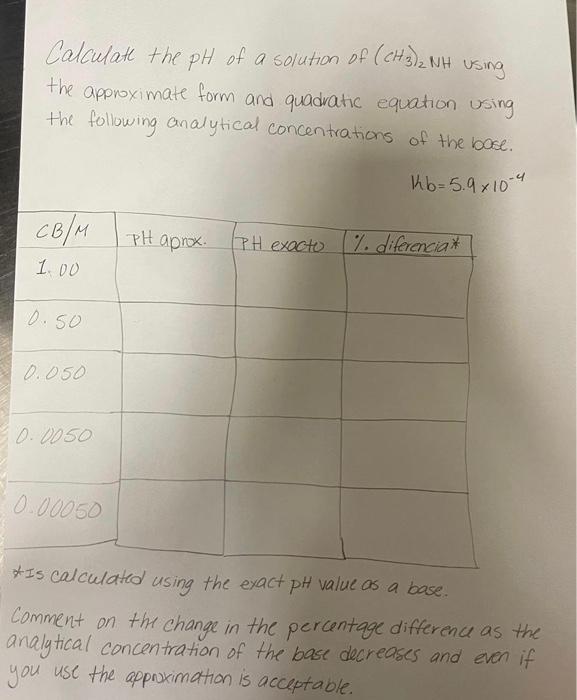 Calculate the pH of a solution of (CH3)2 NH using
the approximate form and quadratic equation using
the following analytical concentrations of the base.
Kb=5.9x10-4
CB/M PH aprox. PH exacto %. diferencia*
1.00
0.50
0.050
0.0050
0.00050
*Is calculated using the exact pH value as a base.
Comment on the change in the percentage difference as the
analytical concentration of the base decreases and even if
you use the approximation is acceptable.